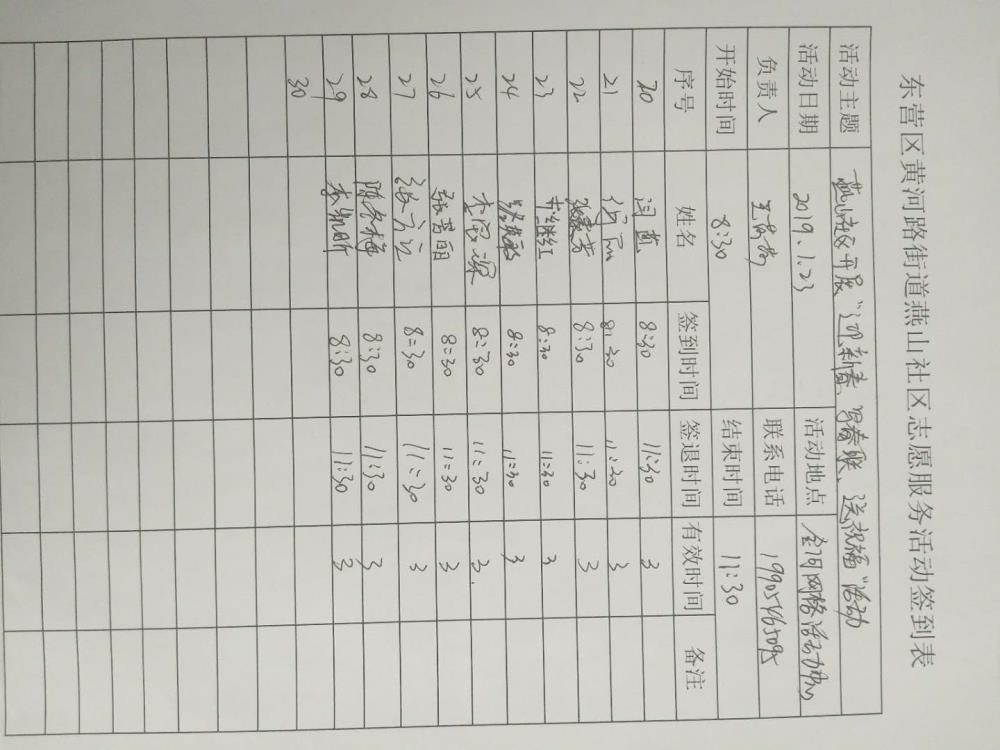 东营区黄河路街道燕山社区志愿服务活动签到表
活动主题 燕山社区开展"迎新春、写春联、送祝福"活动
活动日期 2019.1.23 活动地点 金河网格活动
负责人 联系电话 19905465095
开始时间 8:30 结束时间 11:30
序号 姓名 签到时间 签退时间 有效时间 备注
20 闫 8:30 11:30 3
21 8:30 11:30 3
22 8:30 11:30 3
23 继红 8:30 11:30 3
24 8:30 11:30 3
25 8:30 11:30 3
26 张 丽 8:30 11:30 3
27 8:30 11:30 3
28 陈 梅 8:30 11:30 3
29 李 昕 8:30 11:30 3
30